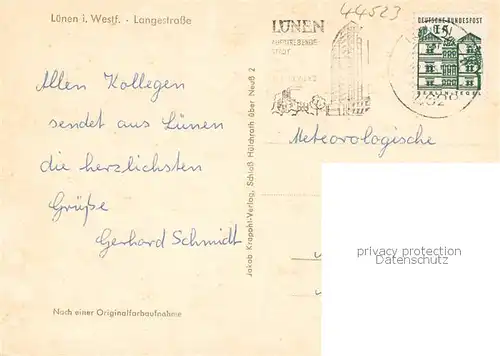 Lünen i. Westf. - Langestraße
44523
LÜNEN
STADT
DEUTSCHE BUNDESPOST
15
BERLIN-TEGEL
Allen Kollegen
sendet aus Lünen
die herzlichsten
Grüße
Gerhard Schmidt
Nach einer Originalfarbaufnahme
Jakob Krapohl-Verlag, Schloß Hülchrath über Neuß 2
Meteorologische
privacy protection
Datenschutz